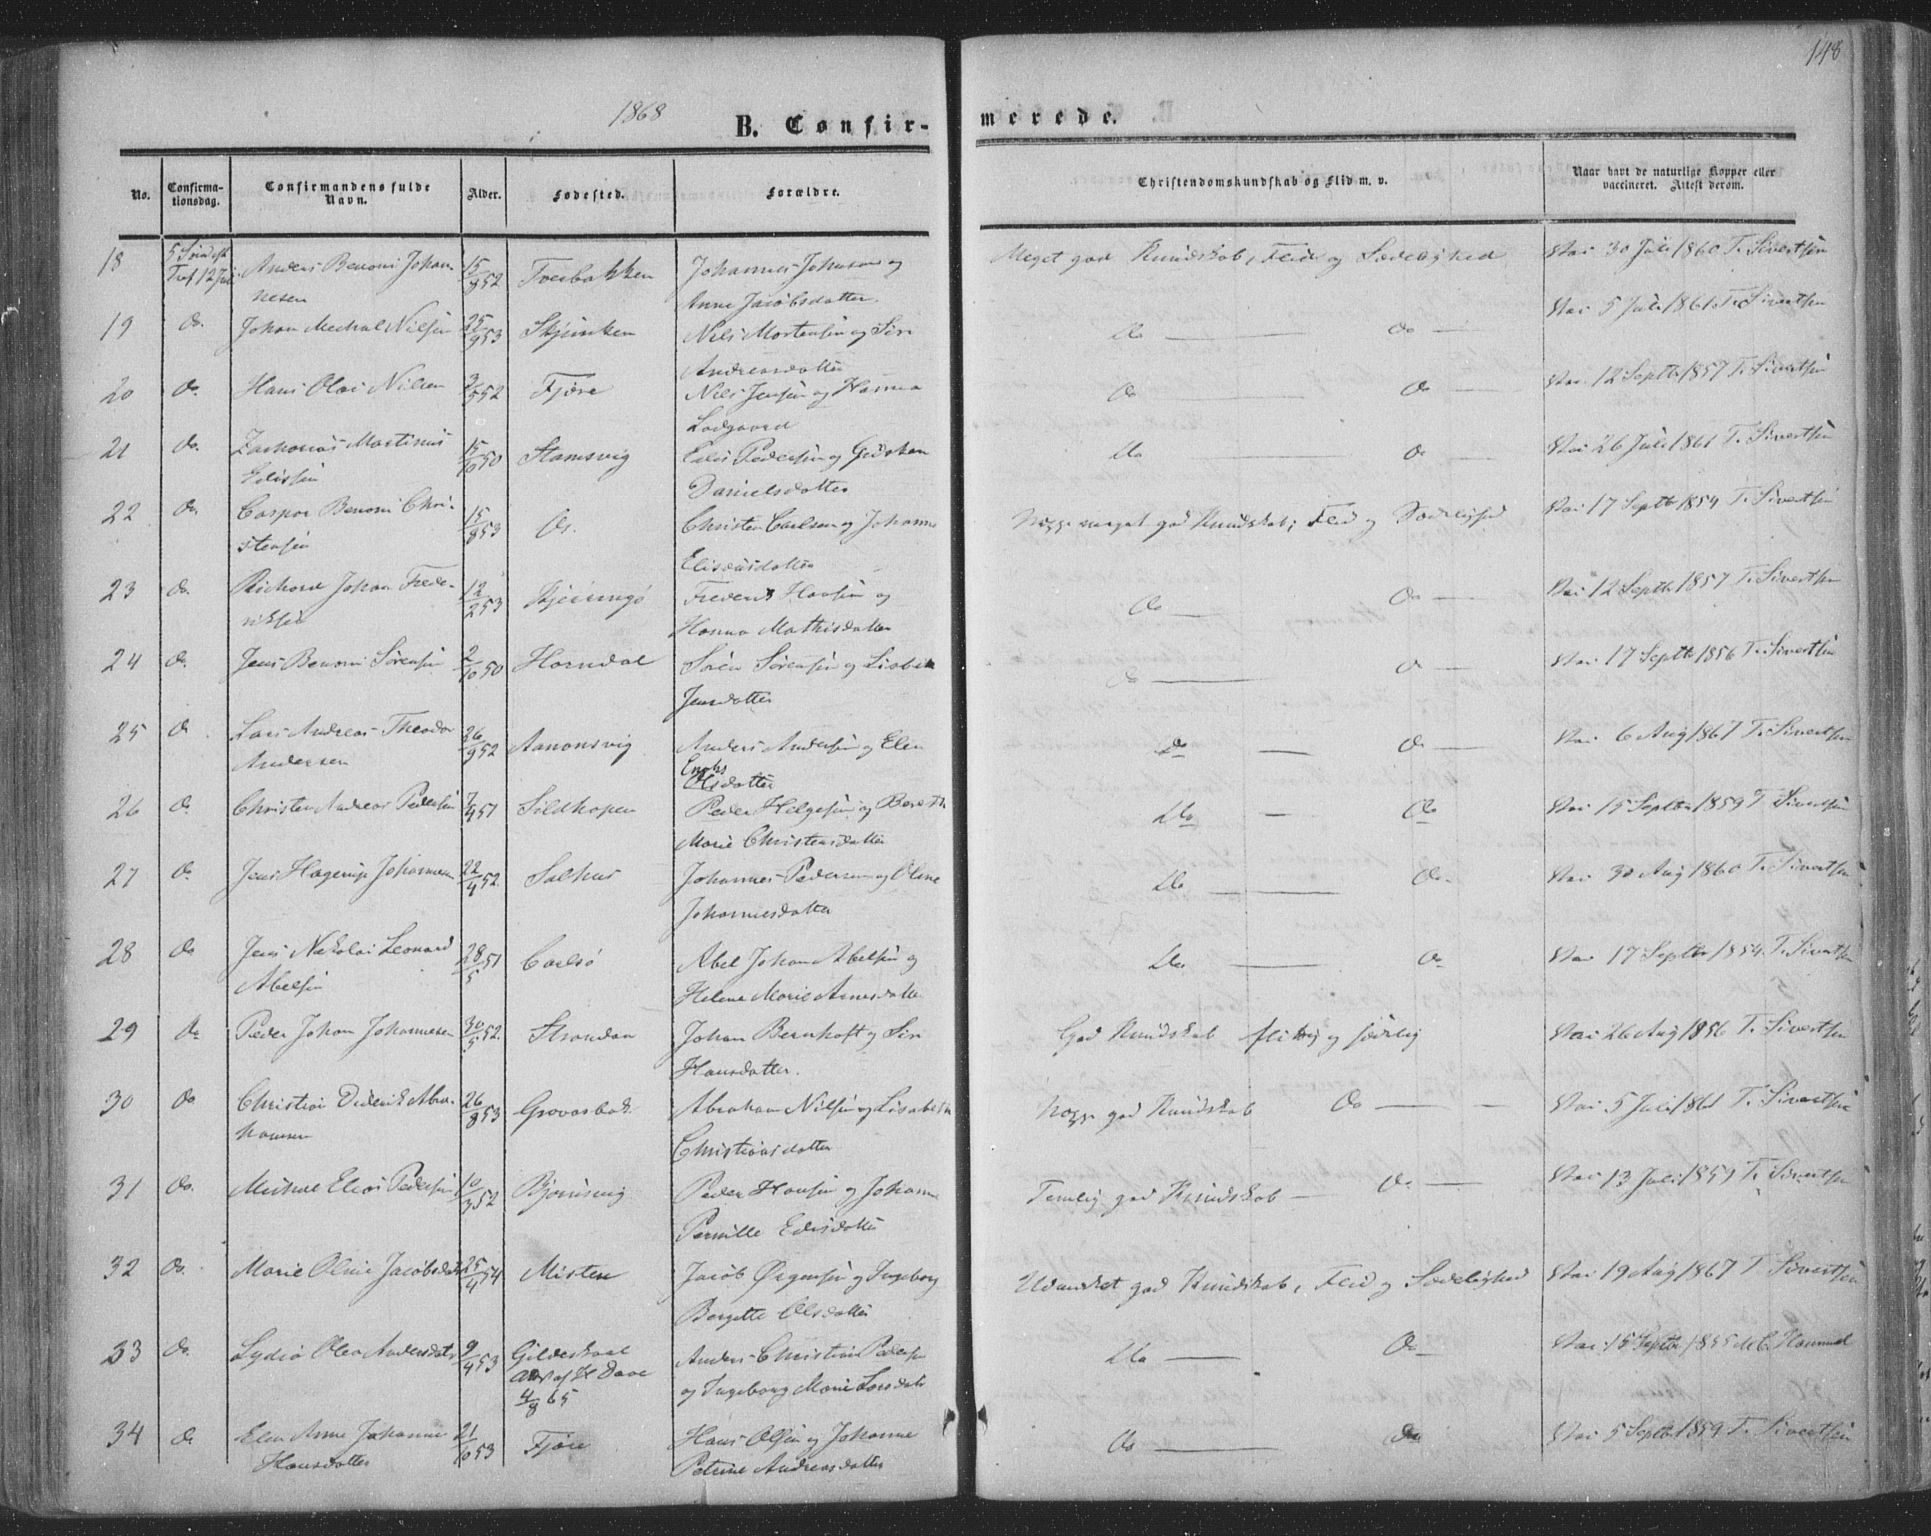 148
1868
B. Confir-
merede.
No.
Confirma-
tionsdag.
Confirmandens fulde
Navn.
Alder.
Fødested.
Forældre.
Christendomskundskab og Flid m. v.
Naar havt de naturlige Kopper eller
vaccineret. Attest derom.
18 5 Tref 12 Juli Anders Benoni Johan- 15/8 52 Johannes Johnsen og Meget god Kundskab, Flid og Sædelighed Vac 30 Juli 1860 T. Sivertsen
nesen Anne Jacobsdatter.
19 Do. Johan Nilsen 25/9 53 Nils Mortensen og Siri Do Do Vac 5 Juli 1861 T. Sivertsen
Andreasdatter
20 Do. Hans Olai Nilsen 52 Fjøre Nils Jensen og Hanna Do Do Vac 12 Septbr 1857 T. Sivertsen
Lodgaard
21 Do. Zacharias Martinus 15/10 50 Stamsvig Edis Pedersen og Gidsken Do Do Vac 26 Juli 1861 T. Sivertsen
Edissen Danielsdatter
22 Do Caspar Benoni Chri- 15/8 53 Os. Christen Carlsen og Johanne meget god Kundskab, Flid og Sædelighed Vac 17 Septbr 1854 T. Sivertsen
stensen Elisæusdatter
23 Do. Richard Johan Frede- 12/2 53 Frederik Hansen og Do Do Vac 12 Septbr 1857 T. Sivertsen
riksen Hanna Mathisdatter
24 Do. Jens Benoni Sørensen 2/10 50 Horndal Søren Sørensen og Lisbeth Do Do Vac 17 Septbr 1856 T. Sivertsen
Jensdatter
25 Do Lars Andreas Theodor 26/9 52 Aanonsvig Anders Andersen og Elen Do Do Vac 6 Aug 1867 T. Sivertsen
Andersen Enoks
Olsdatter
26 Do. Christen Andreas Pedersen 7/4 51 Sildhopen Peder Helgesen og Bereth Do Do Vac 15 Septbr 1859 T. Sivertsen
Marie Christensdatter
27 Do Jens Hagerup Johannesen 22/4 52. Salhus Johannes Pedersen og Oline Do Do Vac 30 Aug 1860 T. Sivertsen
Johannesdatter
28 Do Jens Nikolai Leonard 28/5 51 Carlsø Abel Johan Abelsen og Do Do Vac 17 Septbr 1854 T. Sivertsen
Abelsen Helene Marie Arnesdatter
29 Do Peder Johan Johannesen 30/5 52. Strandaa Johan Bernhoft og Siri God Kundskab flittig og sædelig Vac 26 Aug 1856 T. Sivertsen
Hansdatter.
30 Do Christian Diderik Abra- 26/8 53 Abraham Nilsen og Lisabeth god Kundskab Do Vac 5 Juli 1861 T. Sivertsen
hamsen Christiansdatter
31 Do. Michal Elias Pedersen 10/3 52 Bjørnsvig Peder Hansen og Johanne Temlig god Kundskab Do Vac 13 Juli 1859 T. Sivertsen
Pernille Edisdatter
32 Do. Marie Oline Jacobsdatter 25/4 54 Misten Jacob Ørgensen og Ingeborg Udmærket god Kundskab, Flid og Sædelighed Vac 19 Aug 1867 T. Sivertsen
Bergette Olsdatter
33 Do. Lydia Olea Andersdatter 9/4 53 Gildeskaal Anders Christian Pedersen Do Do Vac 15 Septbr 1855 Hammel
af H Daae og Ingeborg Marie Larsdatter
4/8 65
34 Do Elen Anne Johanne 21/10 53 Fjøre Hans Olsen og Johanne Do Do Vac 5 Septbr 1859 T. Sivertsen
Hansdatter Petrine Andreasdatter